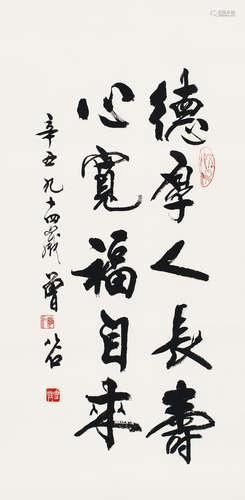 德厚人長壽
心寬福自來
辛丑九十四歲曾